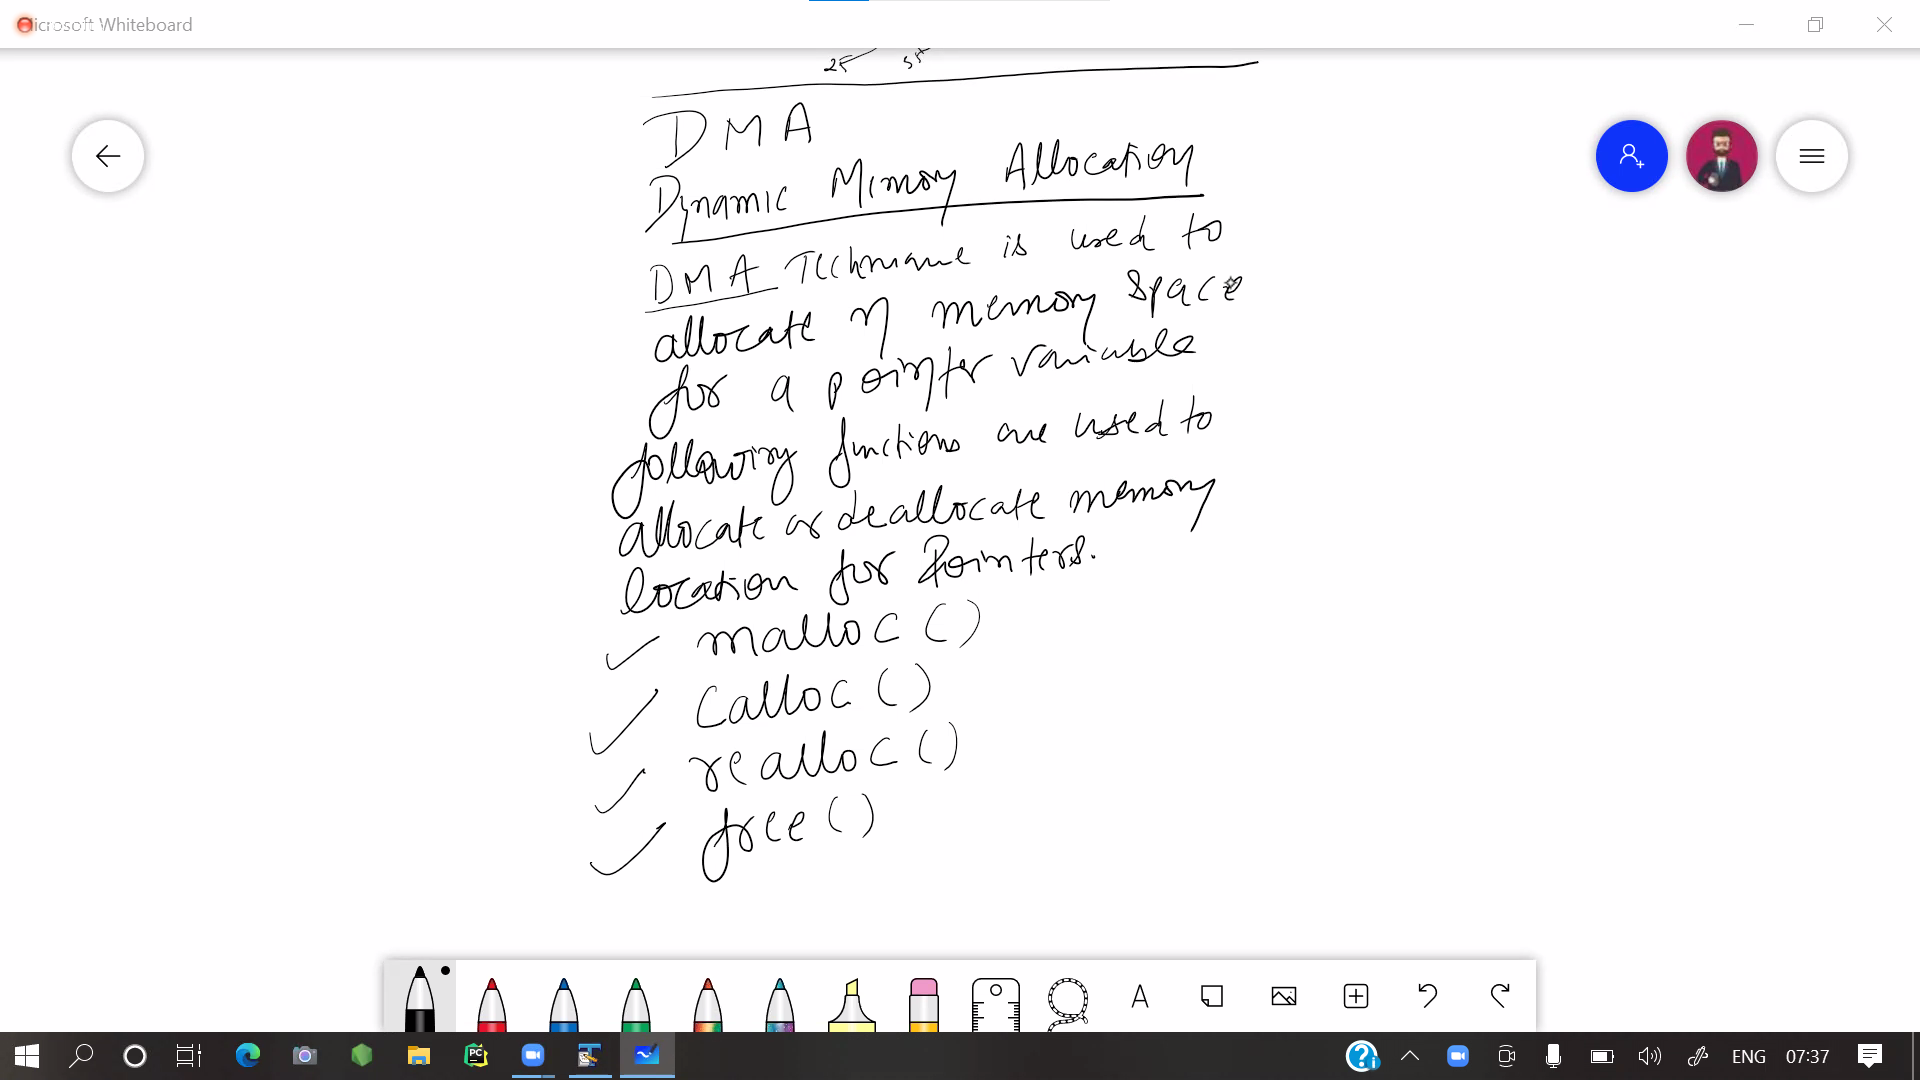 Microsoft Whiteboard
25
DMA
Dynamic Memory Allocation
DMA Technique is used to
allocate n memory space
for a pointer variable
following functions are used to
allocate or deallocate memory
location for Pointers.
malloc()
Calloc()
realloc()
free()
A
PC
ENG 07:37